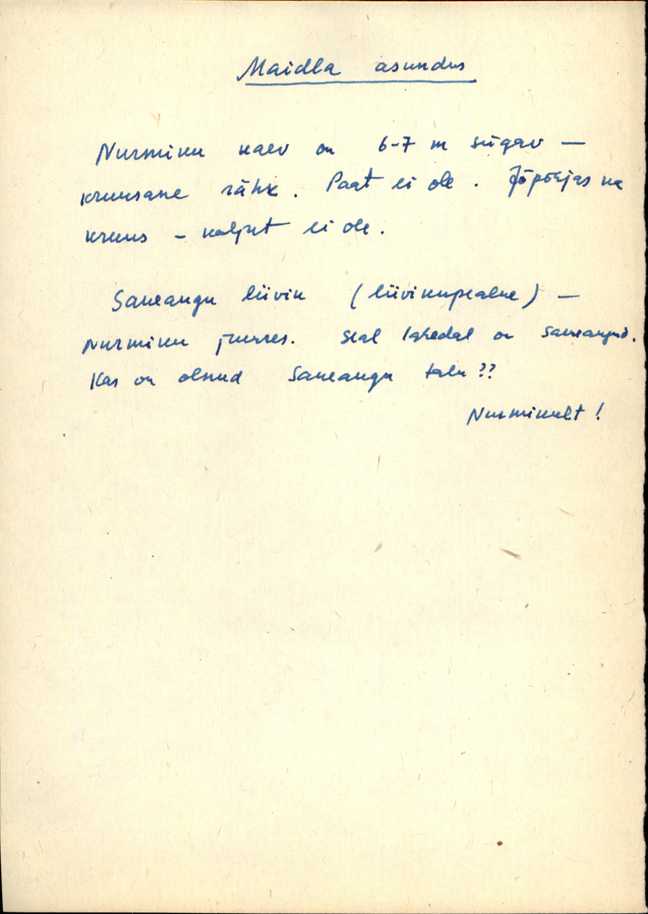 Maidla asundus
Nurmiku kaev on 6-7 m sügav —
kruusane rähk. Paat ei ole. Jõpõhjas ka
kruus – kaljut ei ole.
Saueaugu liivik (liivikupealne) —
Nurmiku juures. Seal lähedal on Saueaugud.
Kas on olnud Saueaugu talu??
Nurmikult!